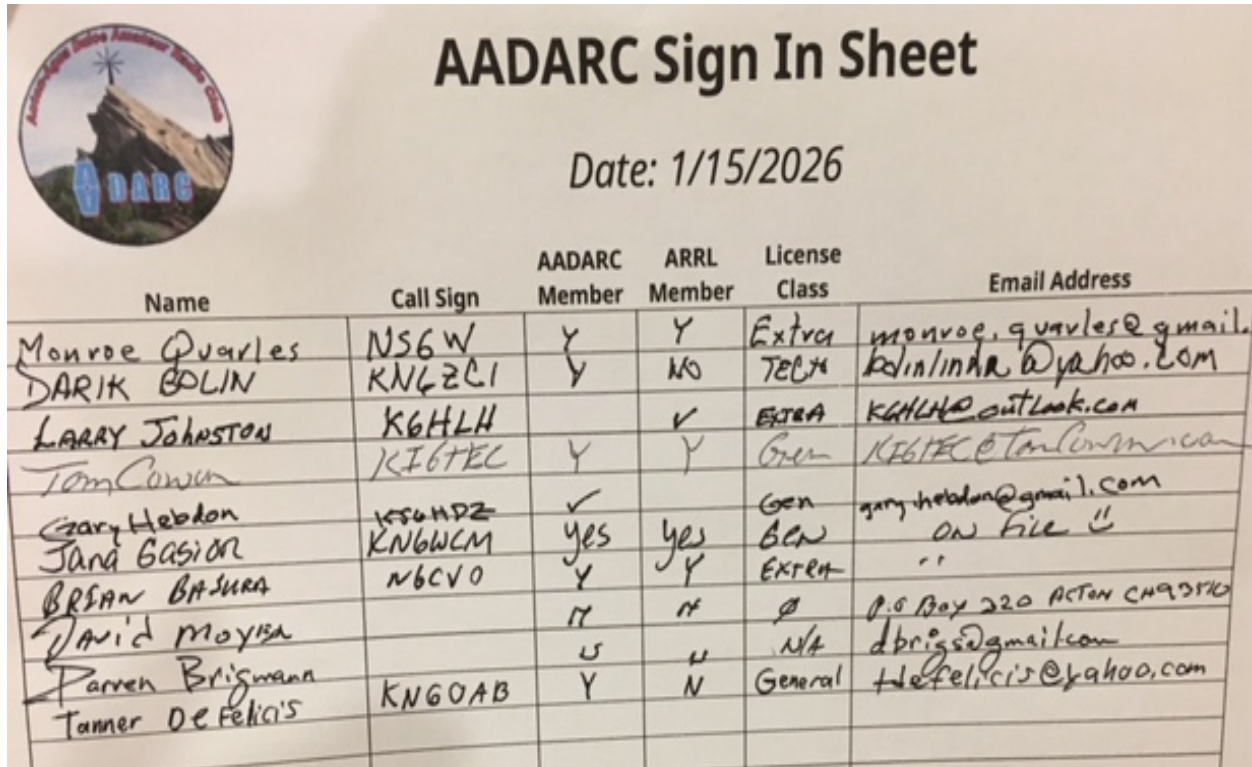 Acton-Agua Dulce Amateur Radio Club
AADARC
AADARC Sign In Sheet
Date: 1/15/2026
Name Call Sign AADARC Member ARRL Member License Class Email Address
Monroe Quarles NS6W Y Y Extra monroe.quarles@gmail.
DARIK BOLIN KN6ZCI Y NO TECH @yahoo.com
LARRY JOHNSTON K6HLH ✓ EXTRA K6HLH@outlook.com
Tom Cowan KI6TEC Y Y Gen
Gary Hebdon ✓ Gen gary.hebdon@gmail.com
Jana Gasior KN6WCM yes yes GEN ON File
BRIAN BASURA N6CVO Y Y EXTRA "
DAVID MOYER N N Ø P.O BOX 220 ACTON CA 93510
Darren Brigmann N N N/A dbrigs@gmailcom
Tanner DeFelicis KN6OAB Y N General tdefelicis@yahoo.com